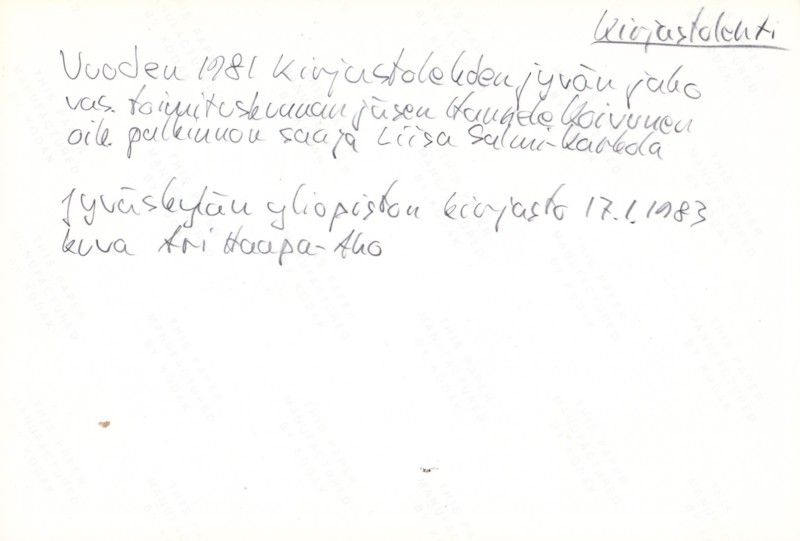 Kirjastolehti
Vuoden 1981 Kirjastolehden jyvän jako
vas. toimituskunnan jäsen Hannele Koivunen
oik. palkinnon saaja Liisa Salmi-
Jyväskylän yliopiston kirjasto 17.1.1983
kuva Ari Haapa-Aho
THIS PAPER
MANUFACTURED
BY KODAK